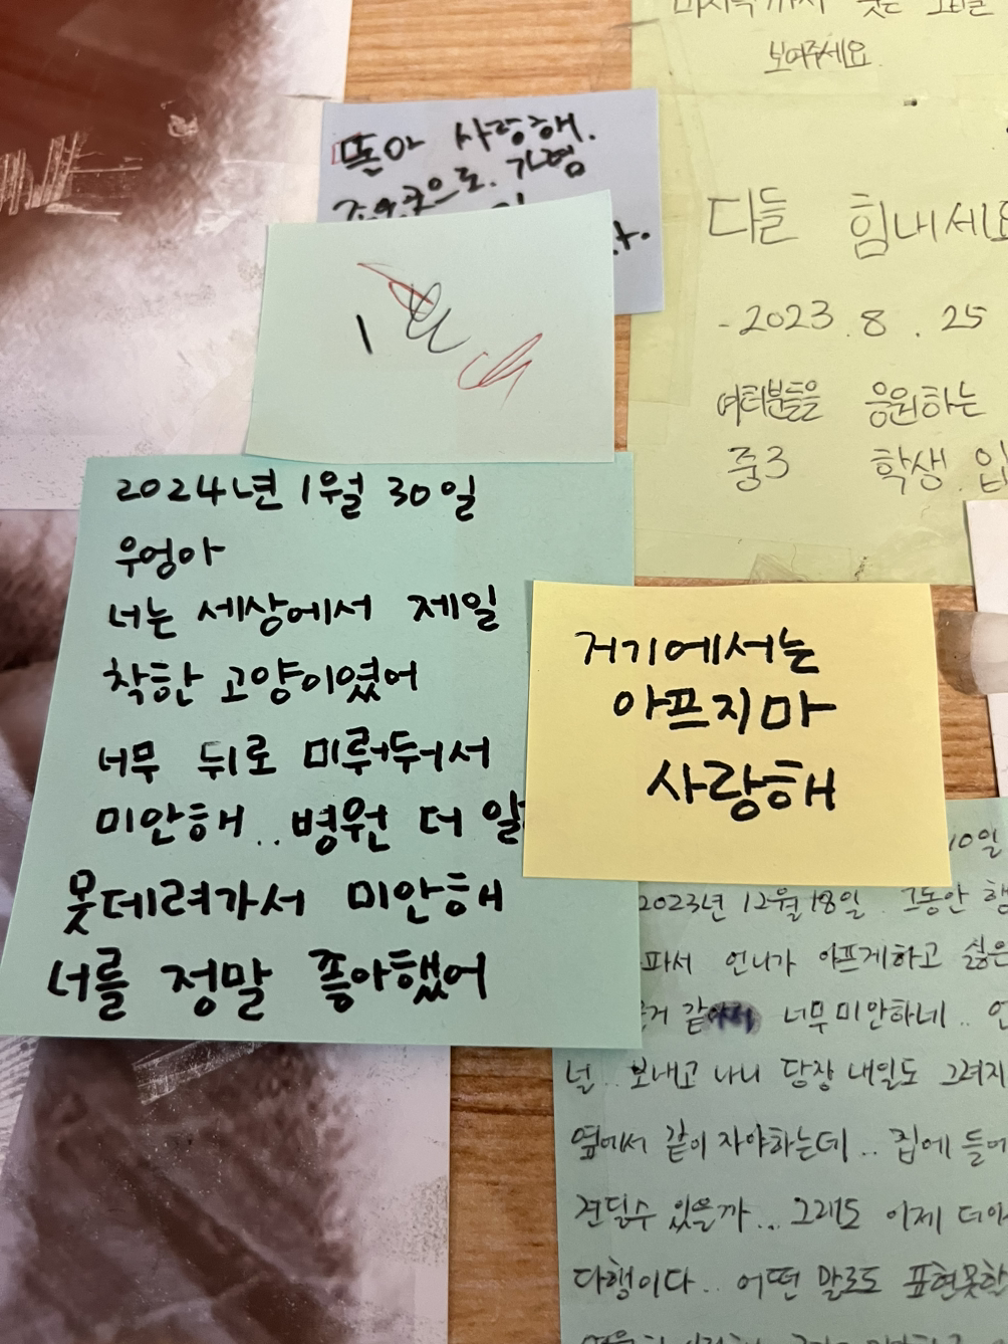 보여주세요.
다들 힘내세요
- 2023. 8. 25
여러분들을 응원하는
중3 학생 입
똔아 사랑해.
2024년 1월 30일
우엉아
너는 세상에서 제일
착한 고양이였어
너무 뒤로 미뤄둬서
미안해.. 병원 더 일
못데려가서 미안해
너를 정말 좋아했어
거기에서는
아프지마
사랑해
10일
2023년 12월 18일. 그동안 행
파서 언니가 아프게하고 싫은
거 같아서 너무 미안하네.. 언
널.. 보내고 나니 당장 내일도 그려지
옆에서 같이 자야하는데.. 집에 들어
견딜수 있을까... 그래도 이제 더아
다행이다.. 어떤 말로도 표현못한